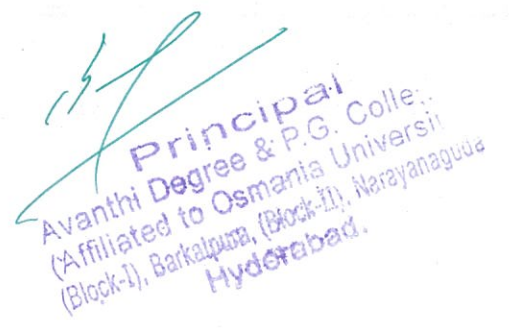 Principal
Avanthi Degree & P.G. Colle
(Affiliated to Osmania Universi
(Block-I), Barkatpura, (Block-II), Narayanaguda
Hyderabad.